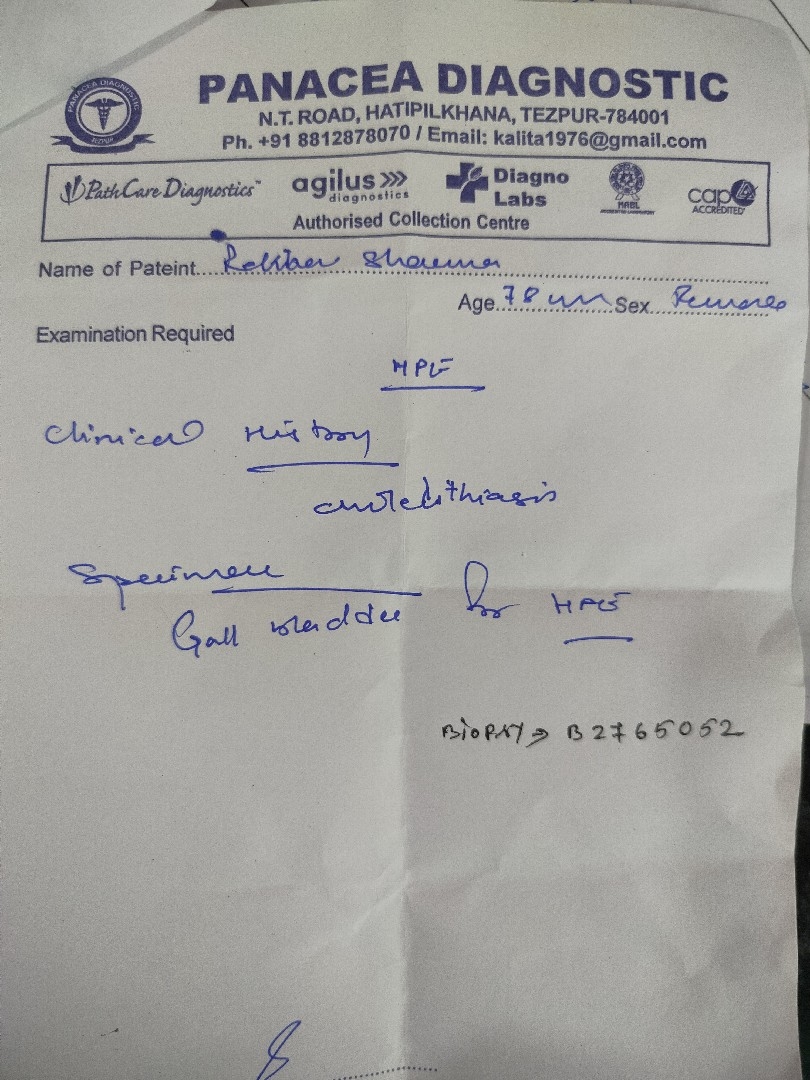 PANACEA DIAGNOSTIC
PANACEA DIAGNOSTIC
TEZPUR
N.T. ROAD, HATIPILKHANA, TEZPUR-784001
Ph. +91 8812878070 / Email: kalita1976@gmail.com
PathCare Diagnostics
agilus diagnostics
Diagno Labs
NABL
cap ACCREDITED
Authorised Collection Centre
Name of Pateint.... Sharma
Age.78 Sex...Female
Examination Required
HPE
Clinical History
cholelithiasis
Specimen
Gall bladder for HPE
BIOPSY → B2765052